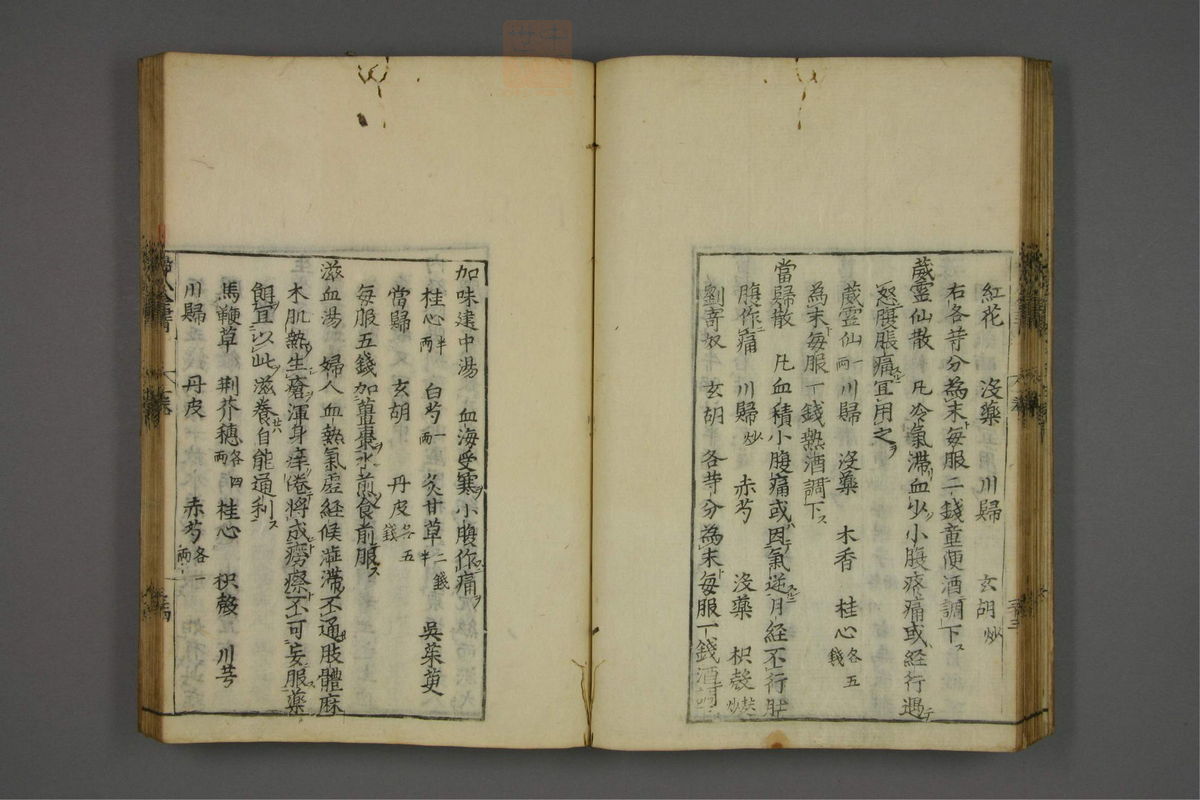 紅花 沒藥 川歸 玄胡炒
右各等分為末每服二錢童便酒調下ス
葳靈仙散 凡冷氣滯血少小腹疼痛或經行遇
怒腹脹痛宜用之
葳靈仙一兩 川歸 沒藥 木香 桂心各五錢
為末每服一錢熱酒調下ス
當歸散 凡血積小腹痛或因氣逆月經不行肚
腹作痛 川歸炒 赤芍 沒藥 枳殼麸炒
劉寄奴 玄胡 各等分為末每服一錢酒調
加味建中湯 血海受寒小腹作痛
桂心半兩 白芍一兩 炙甘草二錢半 吳茱萸
當歸 玄胡 丹皮各五錢
每服五錢加薑棗水煎食前服ス
滋血湯 婦人血熱氣虛經候澁滯不通肢體麻
木肌熱生瘡渾身痒倦將成癆瘵不可妄服藥
餌宜以此滋養自能通利ス
馬鞭草 荆芥穗各四兩 桂心 枳殼 川芎
川歸 丹皮 赤芍各一兩